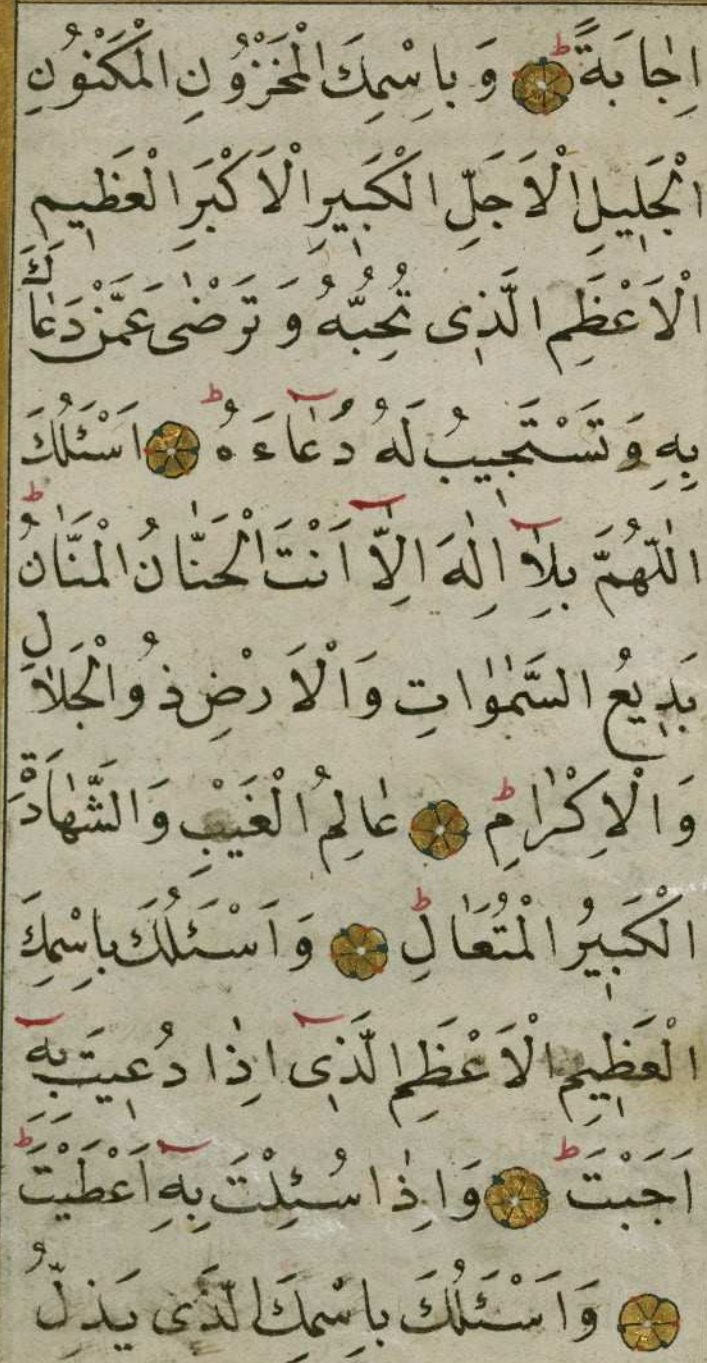 اِجَابَةً ط وَبِاسْمِكَ الْمَخْزُونِ الْمَكْنُونِ
الْجَلِيلِ الْاَجَلِّ الْكَبِيرِ الْاَكْبَرِ الْعَظِيمِ
الْاَعْظَمِ الَّذِى تُحِبُّهُ وَتَرْضٰى عَمَّنْ دَعَاكَ
بِهِ وَتَسْتَجِيبُ لَهُ دُعَآءَهُ ط اَسْئَلُكَ
اللّٰهُمَّ بِلَآ اِلٰهَ اِلَّآ اَنْتَ الْحَنَّانُ الْمَنَّانُ ط
بَدِيعُ السَّمٰوٰاتِ وَالْاَرْضِ ذُوالْجَلَالِ
وَالْاِكْرَامِ ط عَالِمُ الْغَيْبِ وَالشَّهَادَةِ
الْكَبِيرُ الْمُتَعَالِ ط وَاَسْئَلُكَ بِاسْمِكَ
الْعَظِيمِ الْاَعْظَمِ الَّذِىٓ اِذَا دُعِيتَ بِهِٓ
اَجَبْتَ ط وَاِذَا سُئِلْتَ بِهِٓ اَعْطَيْتَ ط
وَاَسْئَلُكَ بِاسْمِكَ الَّذِى يَذِلُّ